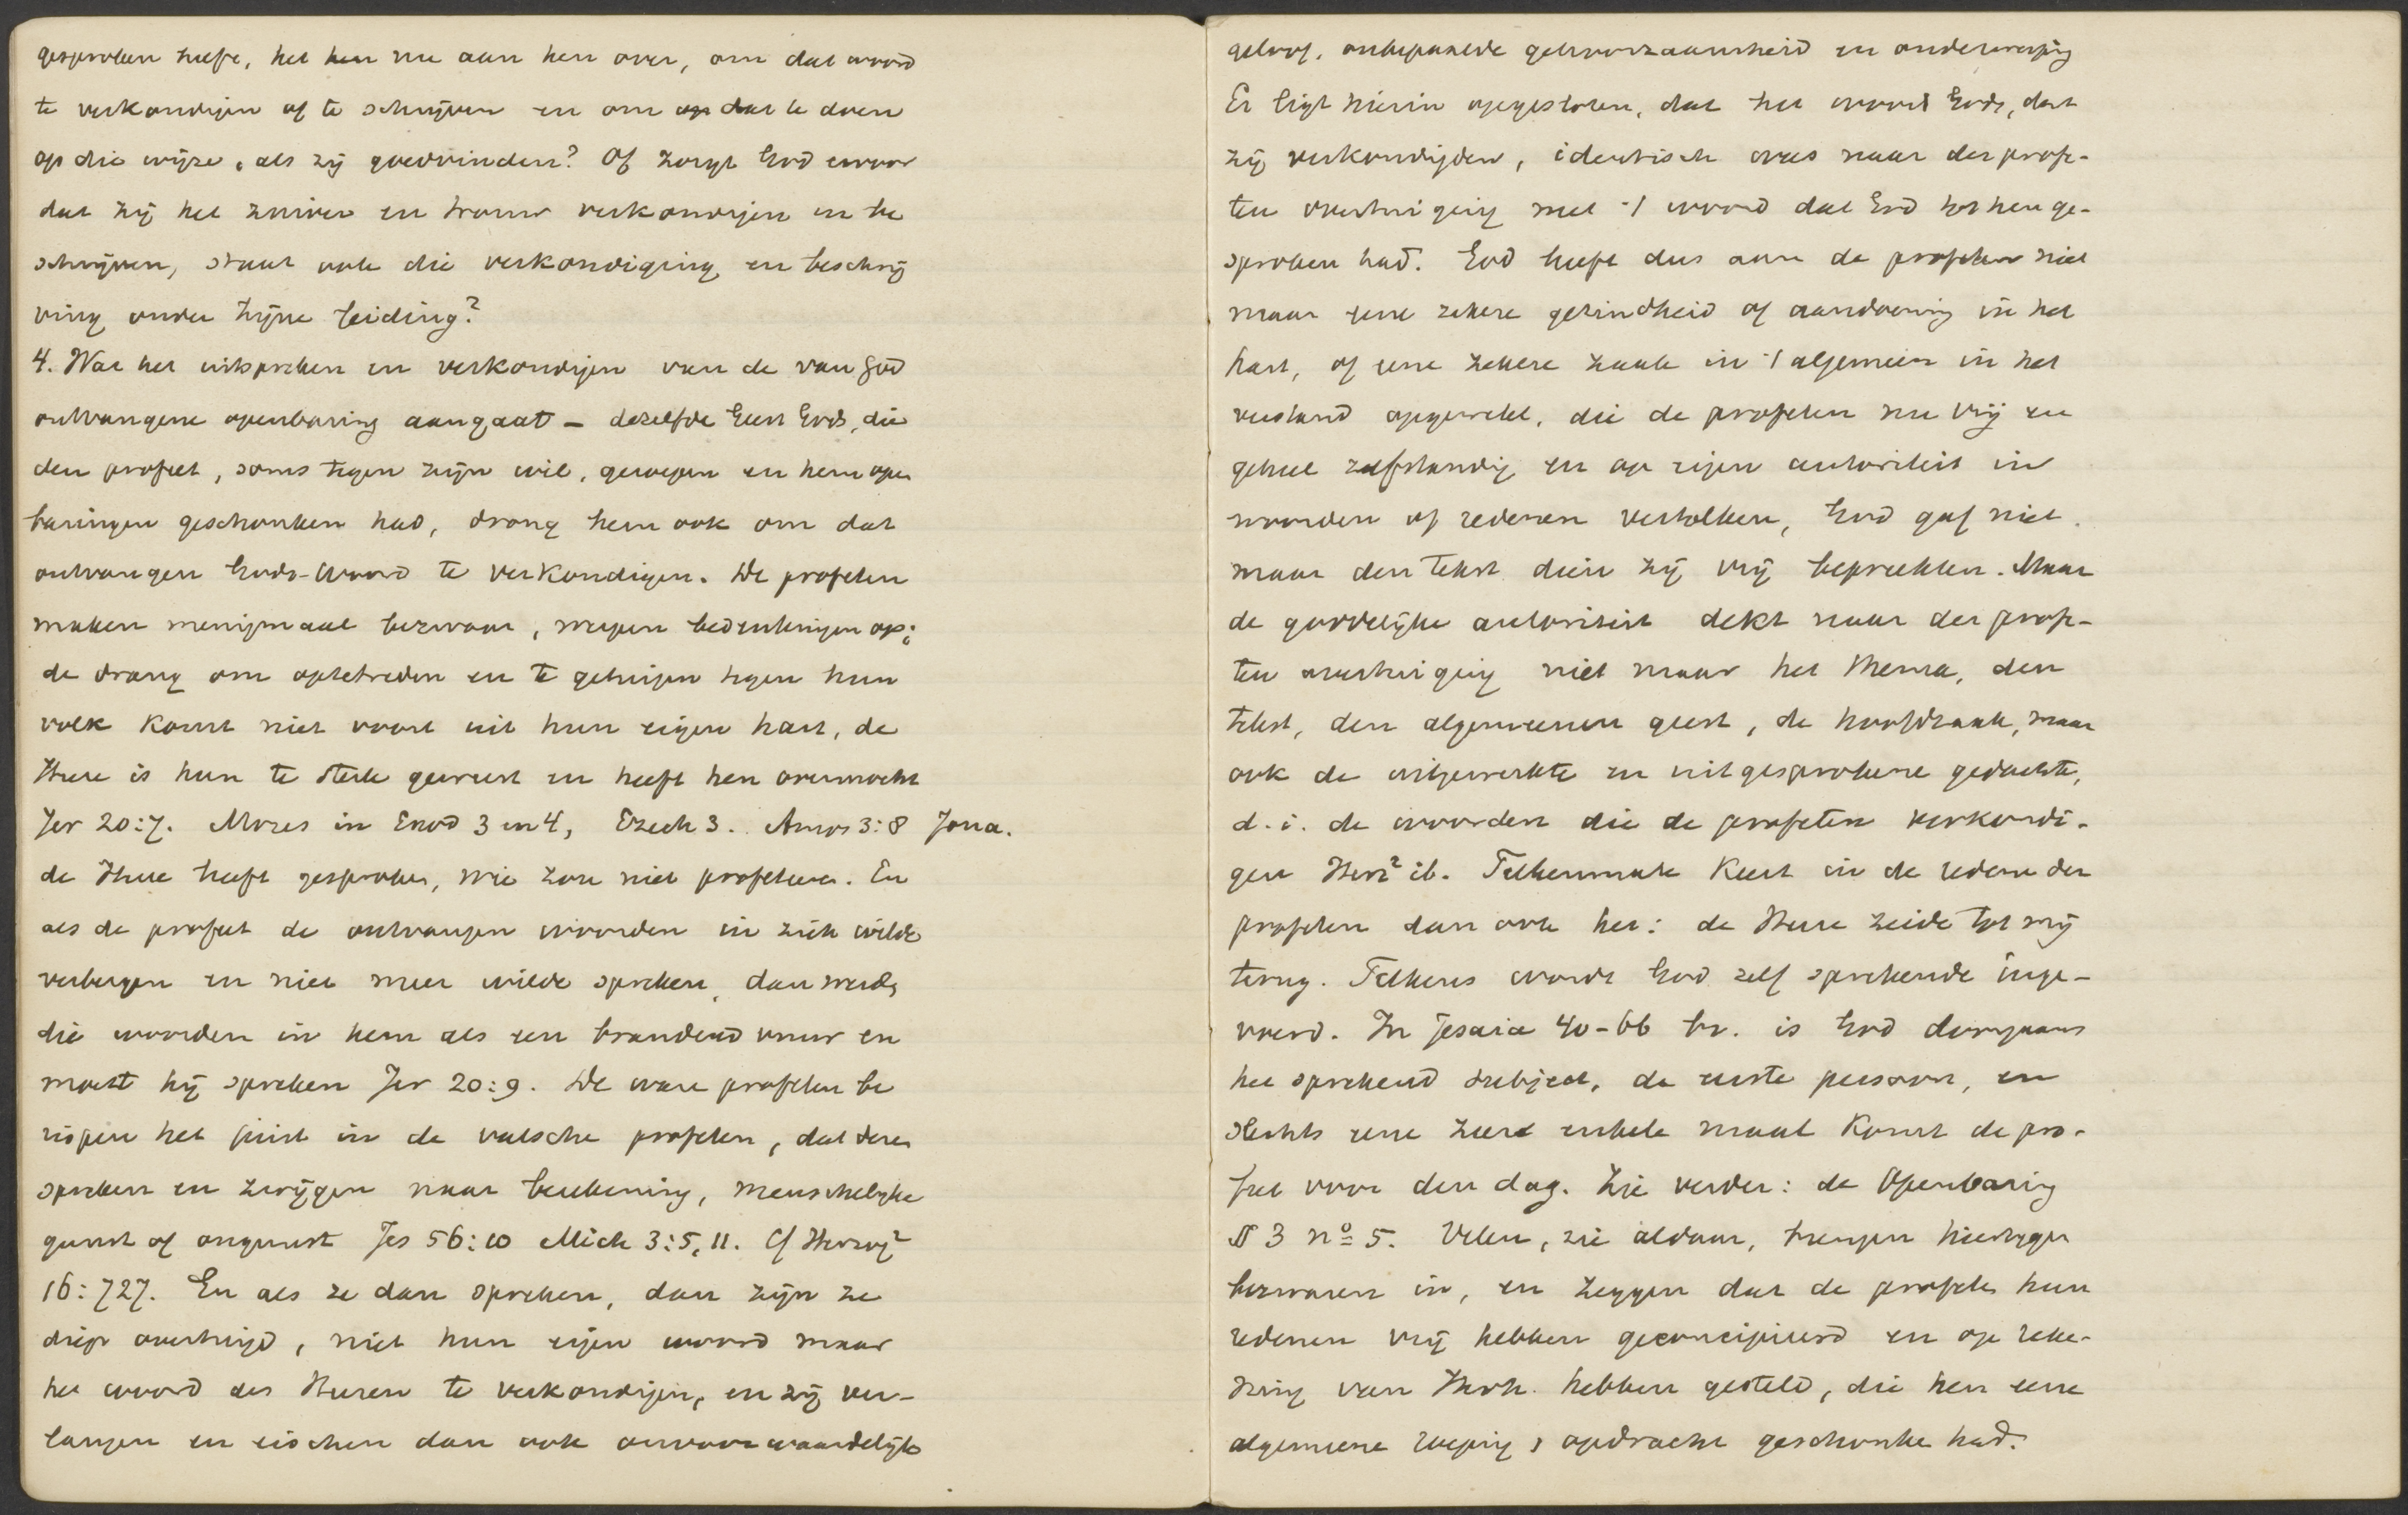 gesproken heeft, het hun nu aan hen over, om dat woord
te verkondigen of te schrijven en om op dat te doen
op die wijze, als zij goedvinden? Of zorgt God ervoor
dat zij het zuiver en trouw verkondigen en be
schrijven, staat ook die verkondiging en beschrij
ving onder zijne leiding?
4. Wat het uitspreken en verkondigen van de van God
ontvangene openbaring aangaat – dezelfde Geest Gods, die
den profeet, soms tegen zijn wil, geroepen en hem open
baringen geschonken had, drong hem ook om dat
ontvangen Gods-Woord te verkondigen. De profeten
maken menigmaal bezwaar, werpen bedenkingen op;
de drang om optetreden en te getuigen tegen hun
volk komt niet voort uit hun eigen hart, de
Heere is hun te sterk geweest en heeft hen overmocht
Jer 20:7. Mozes in Exod 3 en 4, Ezech 3. Amos 3:8 Jona.
de Heere heeft gesproken, wie zou niet profeteren. En
als de profeet de ontvangen woorden in zich wilde
verbergen en niet meer wilde spreken, dan werden
die woorden in hem als een brandend vuur en
moest hij spreken Jer 20:9. De ware profeten be
rispen het juist in de valsche profeten, dat dezen
spreken en zwijgen naar berekening, menschelijke
gunst of ongunst Jes 56:10 Mich 3:5, 11. Cf Herzog²
16:727. En als ze dan spreken, dan zijn ze
diep overtuigd, niet hun eigen woord maar
het woord des Heeren te verkondigen, en zij ver-
langen en eischen dan ook onvoorwaardelijk
geloof, onbepaalde gehoorzaamheid en onderwerping
Er ligt hierin opgesloten, dat het woord Gods, dat
zij verkondigden, identisch was naar der profe-
ten overtuiging met 't woord dat God tot hen ge-
sproken had. God heeft dus aan de profeten niet
maar eene zekere gezindheid of aandoening in het
hart, of eene zekere zaak in 't algemeen in het
verstand opgewekt, die de profeten nu vrij en
geheel zelfstandig en op eigen autoriteit in
woorden of redenen vertolken, God gaf niet
maar den tekst dien zij vrij bepreekten. Maar
de goddelijke autoriteit dekt naar der profe-
ten overtuiging niet maar het thema, den
tekst, den algemeenen geest, de hoofdzaak, maar
ook de uitgewerkte en uitgesprokene gedachte,
d.i. de woorden die de profeten verkondi-
gen Herz² ib. Telkenmale keert in de redenen der
profeten dan ook het: de Heere zeide tot mij
terug. Telkens wordt God zelf sprekende inge-
voerd. In Jesaia 40-66 bv. is God doorgaans
het sprekend subject, de eerste persoon, en
slechts eene zeer enkele maal komt de pro-
feet voor den dag. Zie verder: de Openbaring
§ 3 nº 5. Velen, zie aldaar, brengen hiertegen
bezwaren in, en zeggen dat de profeten hun
redenen vrij hebben geconcipieerd en op reke-
ning van Jhvh. hebben gesteld, die hen eene
algemeene roeping & opdracht geschonken had.